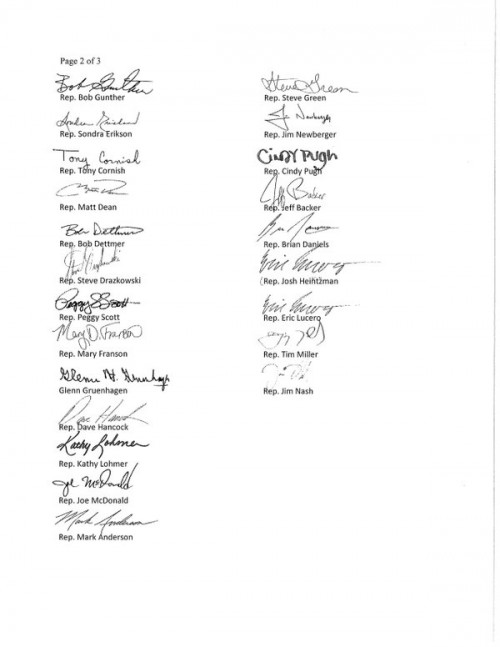 Page 2 of 3
Bob Gunther
Rep. Bob Gunther
Rep. Sondra Erikson
Tony Cornish
Rep. Tony Cornish
Rep. Matt Dean
Bob Dettmer
Rep. Bob Dettmer
Rep. Steve Drazkowski
Peggy Scott
Rep. Peggy Scott
Mary D. Franson
Rep. Mary Franson
Glenn H. Gruenhagen
Glenn Gruenhagen
Dave Hancock
Rep. Dave Hancock
Kathy Lohmer
Rep. Kathy Lohmer
Joe McDonald
Rep. Joe McDonald
Mark Anderson
Rep. Mark Anderson
Steve Green
Rep. Steve Green
Jim Newberger
Rep. Jim Newberger
Cindy Pugh
Rep. Cindy Pugh
Jeff Backer
Rep. Jeff Backer
Rep. Brian Daniels
Eric Lucero
Rep. Josh Heintzman
Eric Lucero
Rep. Eric Lucero
Rep. Tim Miller
Rep. Jim Nash